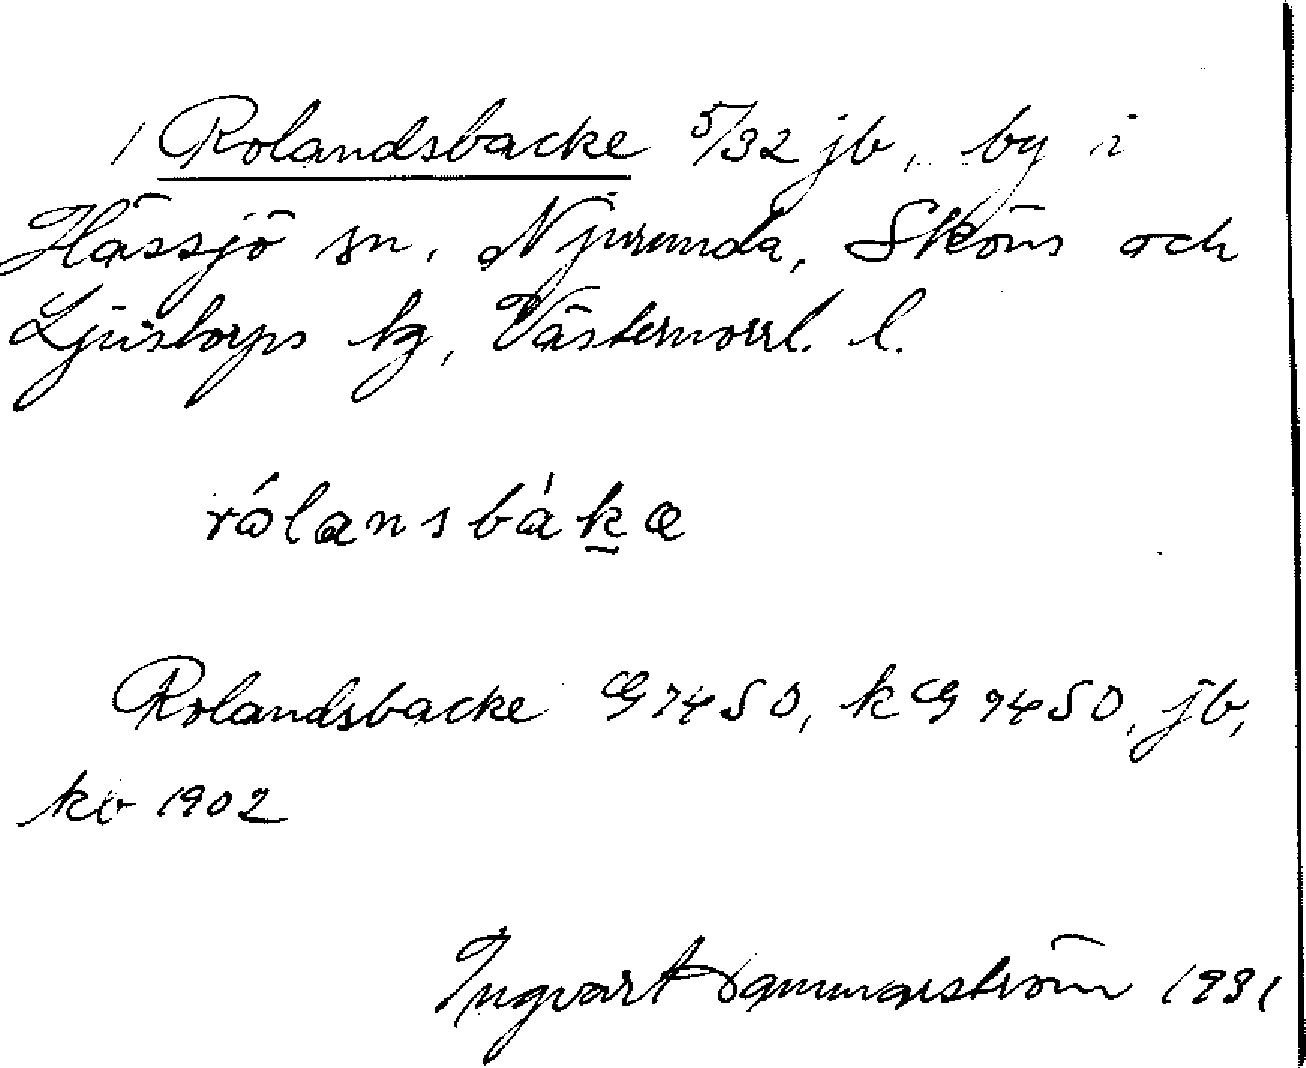 1 Rolandsbacke 5/32 jb, by i
Hässjö sn, Njurunda, Sköns och
Ljustorps tg, Västernorrl. l.
rólansbáka
Rolandsbacke G 74 SO, k G 74 SO, jb,
kb 1902
Ingvart Hammarström 1931